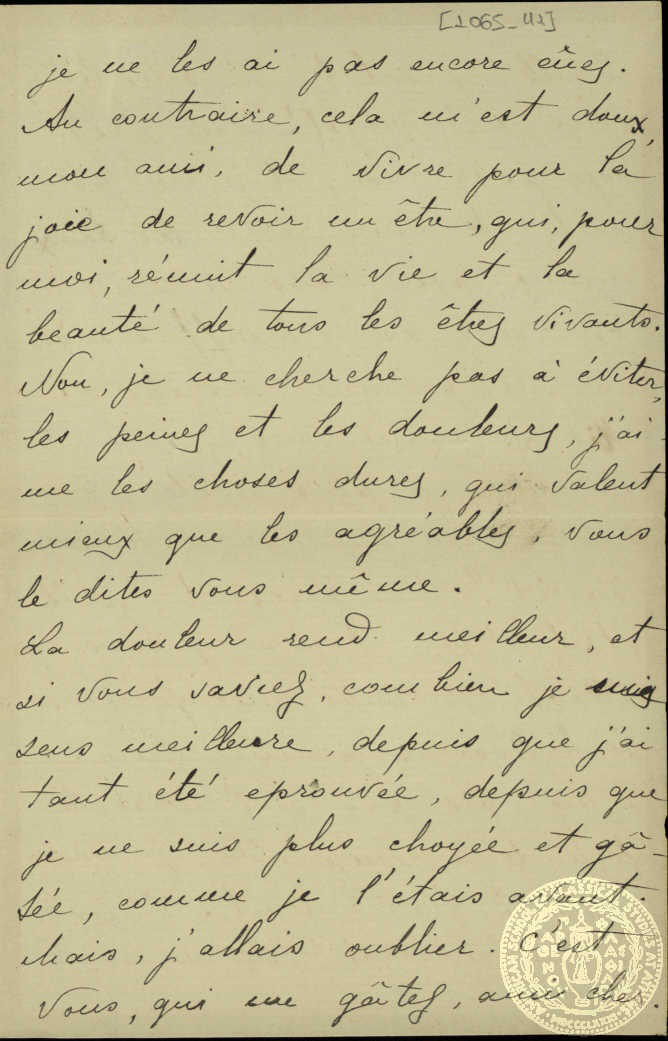 [1065_41]
je ne les ai pas encore eues.
Au contraire, cela m'est doux,
mon ami, de vivre pour la
joie de revoir un être, qui, pour
moi, réunit la vie et la
beauté de tous les êtres vivants.
Non, je ne cherche pas à éviter,
les peines et les douleurs, j'ai-
me les choses dures, qui valent
mieux que les agréables, vous
le dites vous même.
La douleur rend meilleur, et
si vous saviez, combien je suis
sens meilleure, depuis que j'ai
tant été eprouvée, depuis que
je ne suis plus choyée et gâ-
tée, comme je l'étais avant.
Mais, j'allais oublier. C'est
vous, qui me gâtez, ami cher.